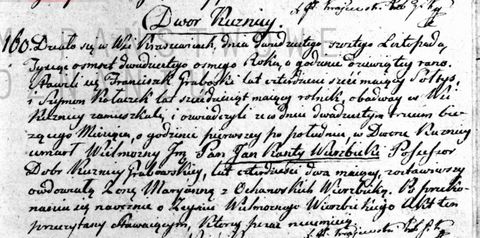 Dwor Kuznicy.
160. Działo się w Wsi Krzeszicach, dnia dwudziestego szóstego Listopada
Tysiąc osmset dwudziestego osmego Roku, o godzinie dziewiątey rano.
Stawili się Franciszek Graboski lat czterdzieści sześć maiący Sołtys,
i Szymon Kołaczek lat sześćdziesiąt maiący rolnik obadway w Wsi
Kuznicy zamieszkali, i oświadczyli że w dniu dwudziestym trzecim bie-
żącego Miesiąca, o godzinie pierwszey po południu, w Dworze Kuznicy
umarł Wielmozny Jm Pan Jan Kanty Wierzbicki Possessor
Dobr Kuznicy Grabowskiey, lat czterdzieści dwa maiący, zostawiwszy
owdowiałą Zonę Maryannę z Ochanowskich Wierzbicką. Po przeko-
naniu się naocznie o Zeysciu Wielmoznego Wierzbickiego Akt ten
przeczytany Stawaiącym, którzy pisac nieumieią